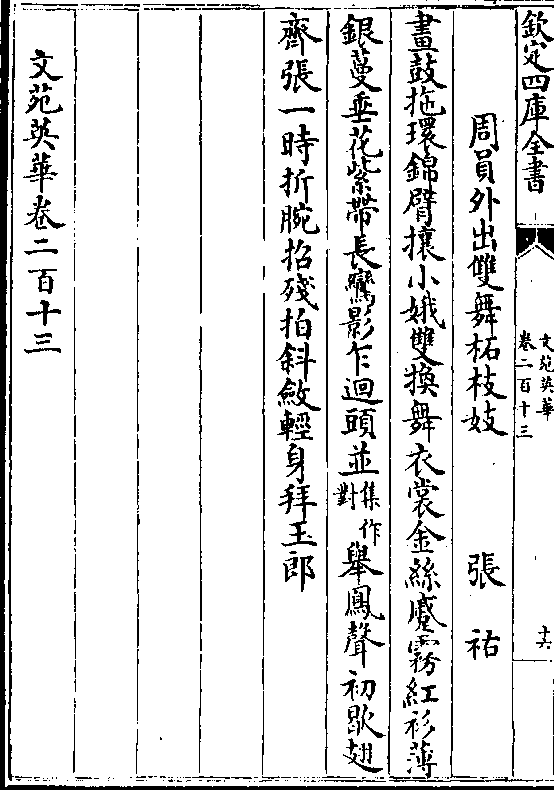 欽定四庫全書
文苑英華
卷二百十三
十六
周員外出雙舞柘枝妓 張祐
畫鼓拖環錦臂攘小娥雙換舞衣裳金絲蹙霧紅衫薄
銀蔓垂花紫帶長鸞影乍迴頭並集作對舉鳳聲初歇翅
齊張一時折腕招殘拍斜斂輕身拜玉郎
文苑英華卷二百十三